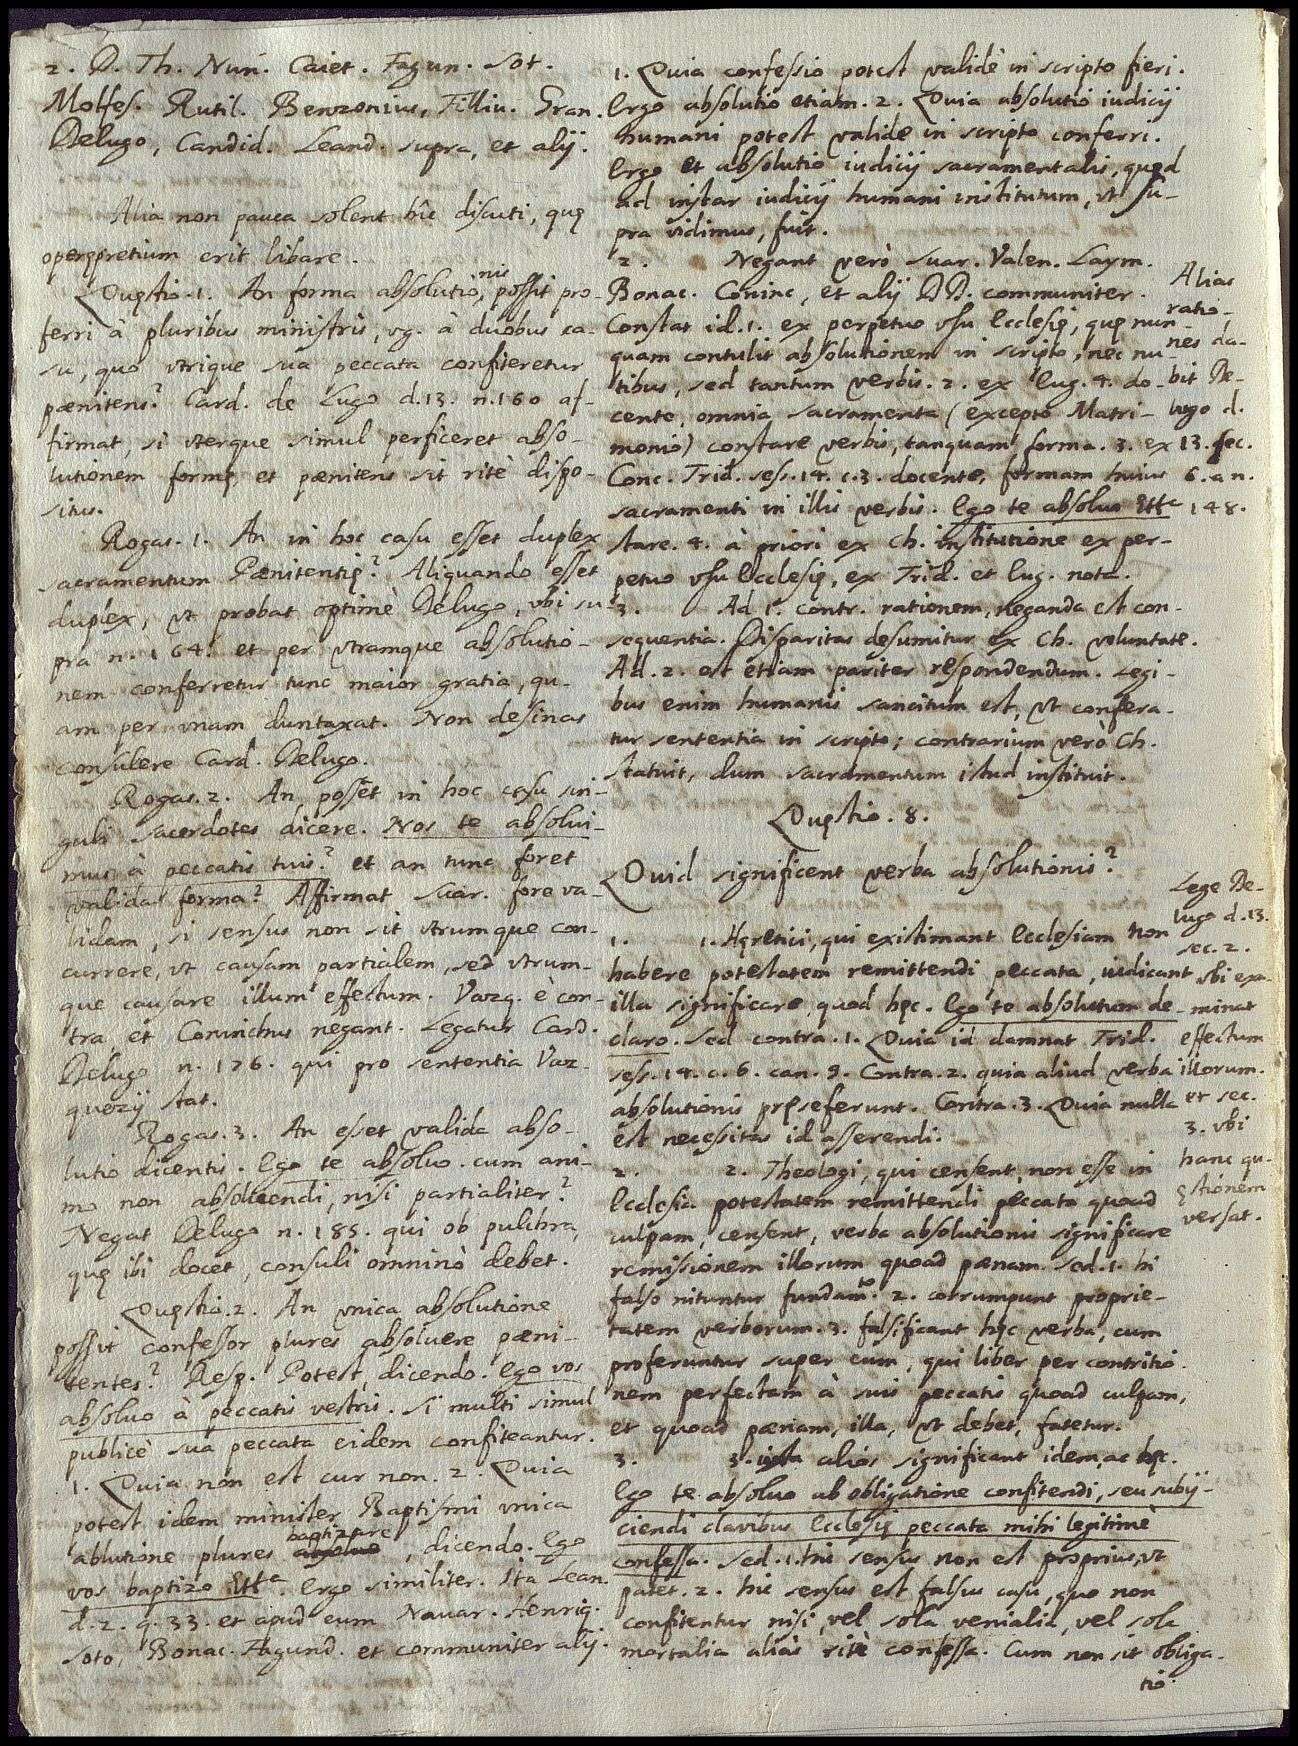 2. D. Th. Nun. Caiet. Fagun. Sot.
Molfes. Rutil. Benzonius, Filliu. Gran.
Delugo, Candid. Leand. supra, et alij.
Alia non pauca solent hîc discuti, quę
operępretium erit libare.
Quęstio. 1. An forma absolutionis, possit pro-
ferri à pluribus ministris, vg. à duobus ca-
su, quo vtrique sua peccata confiteretur
pænitens? Card. de Lugo d.13. n.160 af-
firmat, si vterque simul perficeret abso-
lutionem formę et pænitens sit ritè dispo-
situs.
Rogas. 1. An in hoc casu esset duplex
sacramentum Pænitentię? Aliquando esset
duplex, vt probat optimè Delugo, vbi su-
pra n. 164. et per vtramque absolutio-
nem conferretur tunc maior gratia, qu-
am per vnam duntaxat. Non desinas
consulere Card. Delugo.
Rogas. 2. An posset in hoc casu sin-
guli sacerdotes dicere. Nos te absolui-
mus à peccatis tuis? et an tunc foret
valida forma? Affirmat Suar. fore va-
lidam, si sensus non sit vtrumque con-
currere, vt causam partialem, sed vtrum-
que causare illum effectum. Vazq. è con-
tra, et Coninchus negant. Legatur Card.
Delugo n. 176. qui pro sententia Vaz-
quezij stat.
Rogas. 3. An esset valida abso-
lutio dicentis. Ego te absoluo. cum ani-
mo non absoluendi, nisi partialiter?
Negat Delugo n. 185. qui ob pulchra,
quę ibi docet, consuli omninò debet.
Quęstio. 2. An vnica absolutione
possit confessor plures absoluere pæni-
tentes? Resp. Potest, dicendo. Ego vos
absoluo à peccatis vestris. si multi simul
publicè sua peccata eidem confiteantur.
1. Quia non est cur non. 2. Quia
potest idem minister Baptismi vnica
ablutione plures baptizare, dicendo. Ego
vos baptizo Etta. Ergo similiter. Ita Lean.
d. 2. q. 33. et apud eum Nauar. Henriq.
Soto, Bonac. Fagund. et communiter alij.
1. Quia confessio potest validè in scripto fieri.
Ergo absolutio etiam. 2. Quia absolutio iudicij
humani potest validè in scripto conferri.
Ergo et absolutio iudicij sacramentalis, quod
ad instar iudicij humani institutum, vt su-
pra vidimus, fuit.
2. Negant verò Suar. Valen. Laym.
Bonac. Coninc, et alij DD. communiter.
Constat id. 1. ex perpetuo vsu Ecclesię, quę nun-
quam contulit absolutionem in scripto, nec nu-
tibus, sed tantum verbis. 2. ex Eug. 4. do-
cente, omnia sacramenta (excepto Matri-
monio) constare verbis, tanquam forma. 3. ex
Conc. Trid. sess. 14. c.3. docente, formam huius
sacramenti in illis verbis. Ego te absoluo Etta
stare. 4. à priori ex Ch. institutione ex per-
petuo vsu Ecclesię, ex Trid. et Eug. nota.
3. Ad 1. contr. rationem, neganda est con-
sequentia. Disparitas desumitur ex Ch. voluntate.
Ad. 2. est etiam pariter respondendum. Legi-
bus enim humanis sancitum est, vt confera-
tur sententia in scripto; contrarium verò Ch.
statuit, dum sacramentum istud instituit.
Alias
ratio-
nes da-
bit De-
lugo d.
13. sec.
6. a n.
148.
Quęstio. 8.
Quid significent verba absolutionis?
1. 1. Hęretici, qui existimant Ecclesiam non
habere potestatem remittendi peccata, iudicant
illa significare, quod hęc. Ego te absolutum de-
claro. Sed contra. 1. Quia id damnat Trid.
sess. 14. c. 6. can. 9. Contra. 2. quia aliud verba
absolutionis pręseferunt. Contra. 3. Quia nulla
est necessitas id asserendi.
2. 2. Theologi, qui censent, non esse in
Ecclesia potestatem remittendi peccata quoad
culpam, censent, verba absolutionis significare
remissionem illorum quoad pænam. Sed. 1. hi
falso nituntur fundamto. 2. corrumpunt proprie-
tatem verborum. 3. falsificant hęc verba, cum
proferuntur super eum, qui liber per contritio-
nem perfectam à suis peccatis quoad culpam,
et quoad pænam, illa, vt debet, fatetur.
3. 3. iuxta alios significant idem, ac hęc.
Ego te absoluo ab obligatione confitendi, seu subij-
ciendi clauibus Ecclesię peccata mihi legitimè
confessa. Sed. 1. hic sensus non est proprius, vt
patet. 2. hic sensus est falsus casu, quo non
confitentur nisi, vel sola venialia, vel sola
mortalia aliàs ritè confessa. Cum non sit obliga-
tio
Lege De-
lugo d. 13.
sec. 2.
vbi exa-
minat
effectum
illorum.
et sec.
3. vbi
hanc qu-
ęstionem
versat.